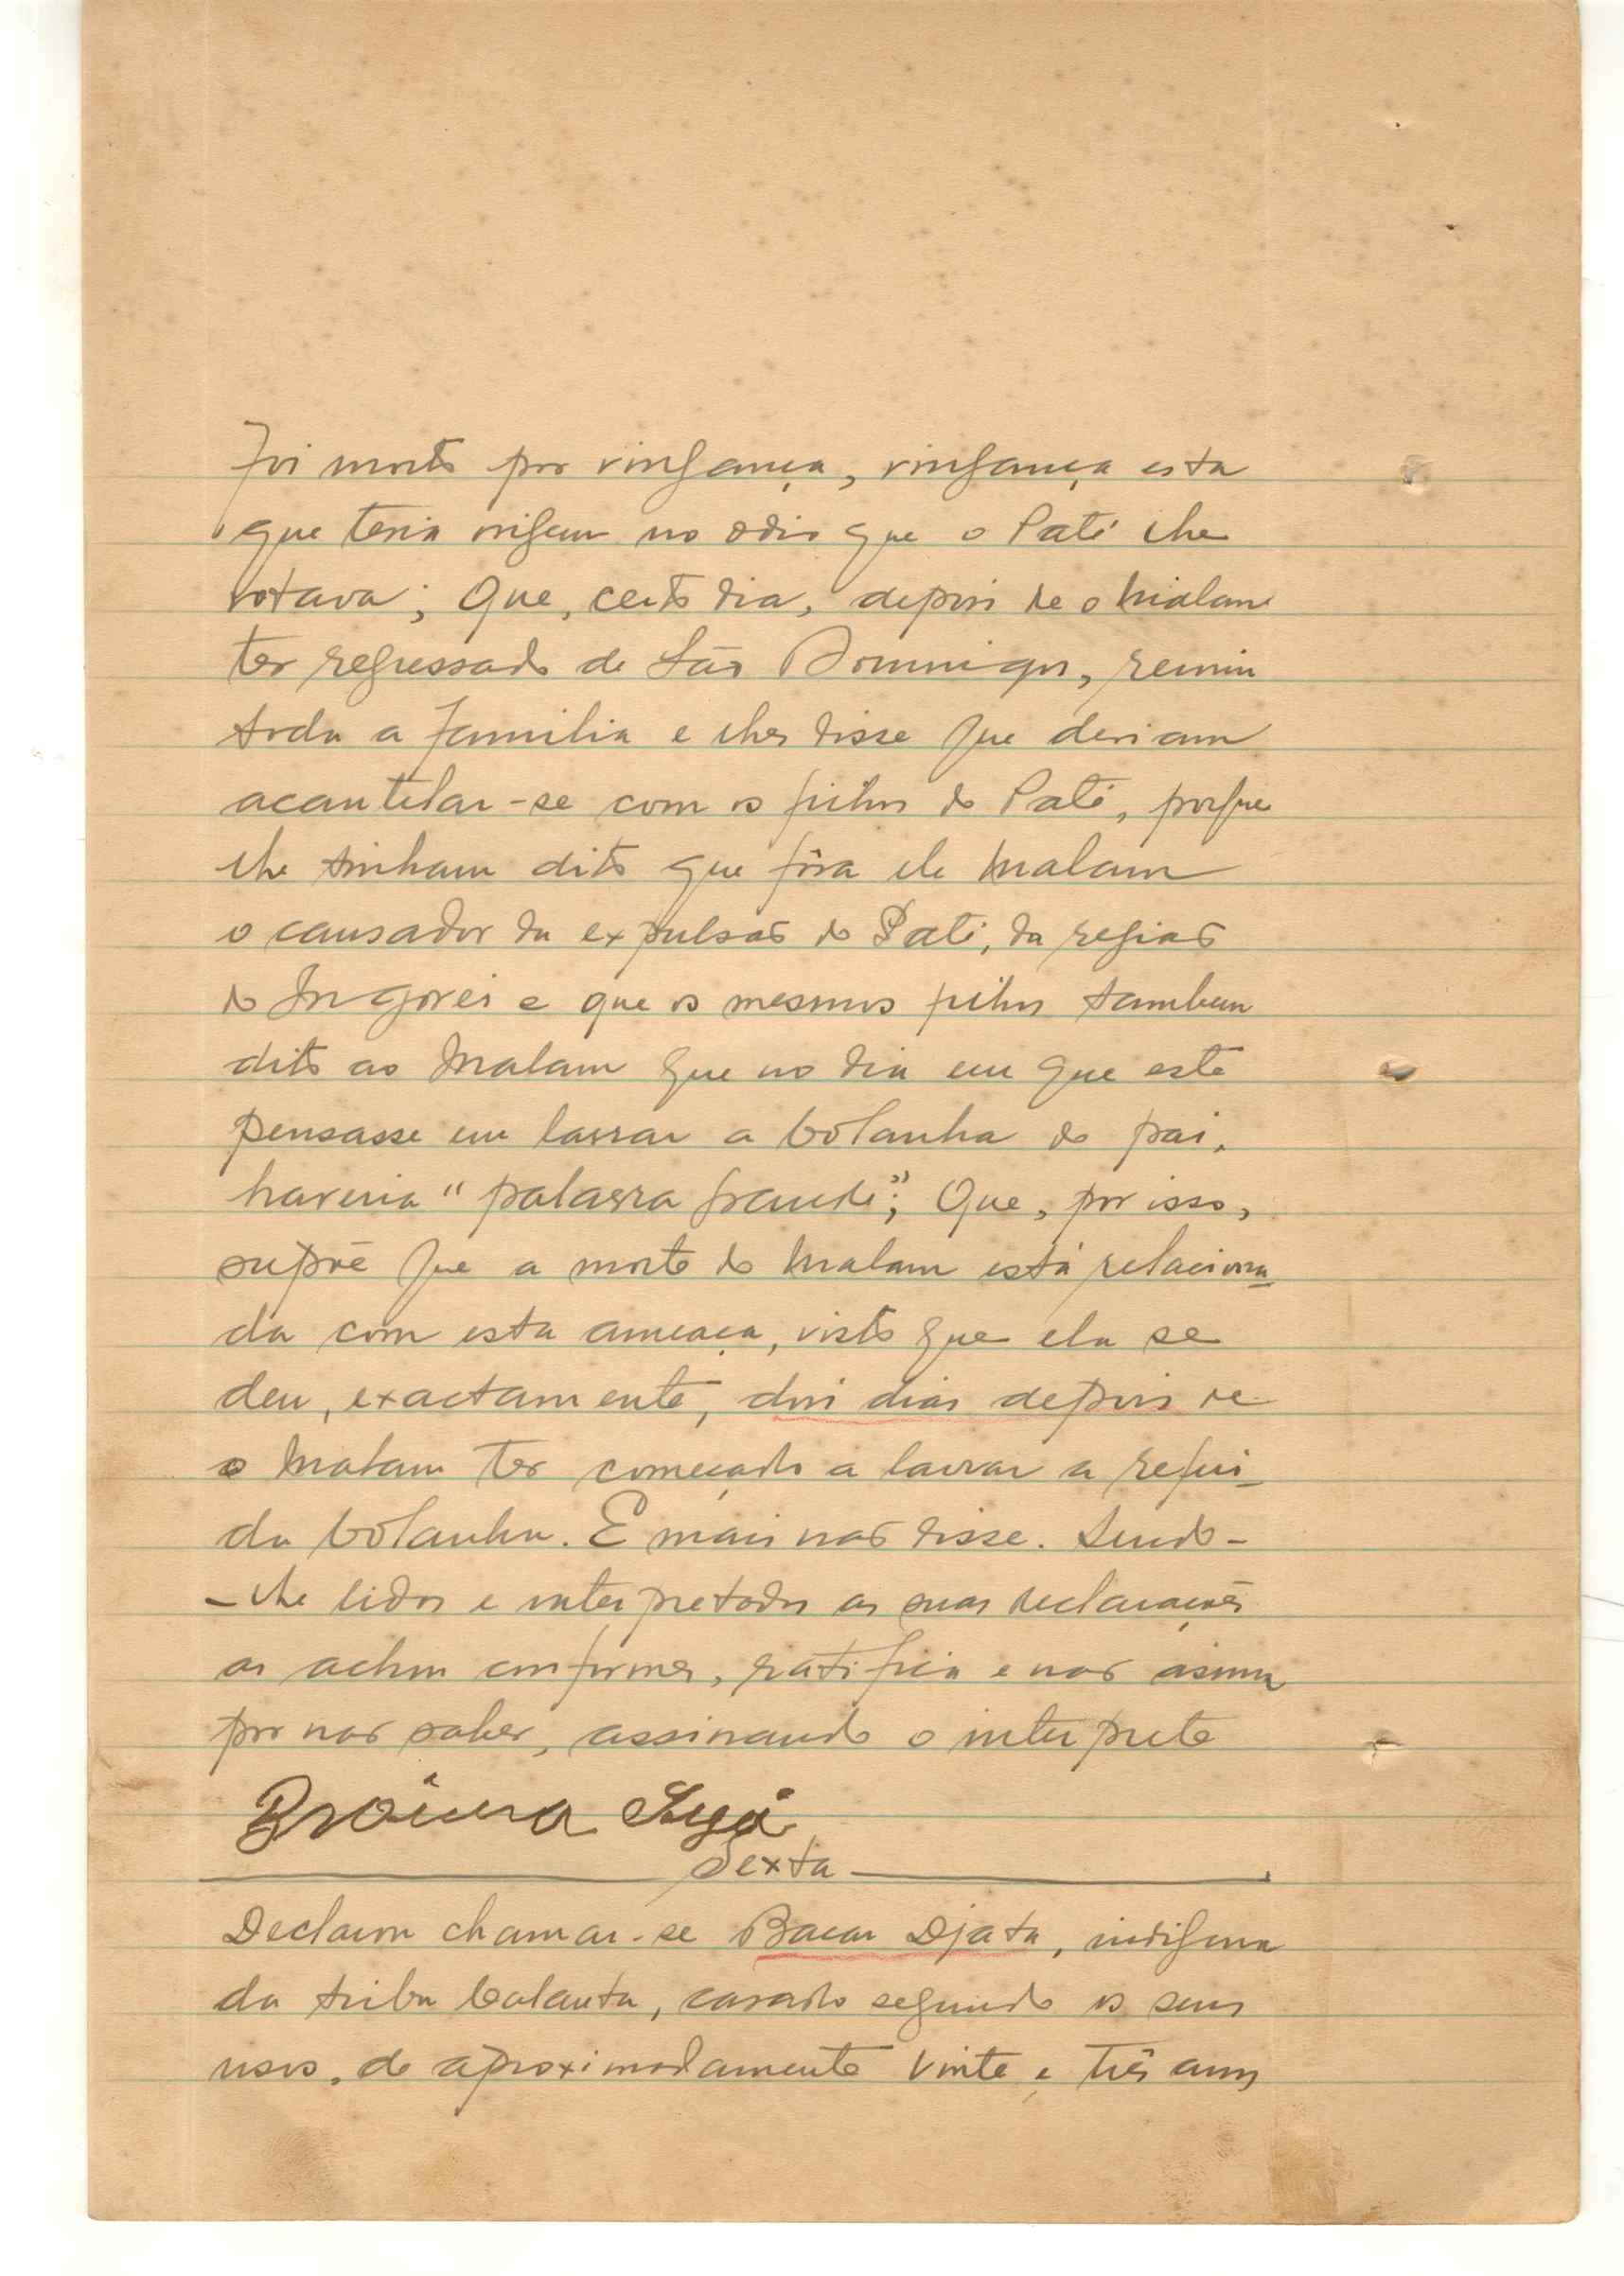 foi morto por vingança, vingança esta
que teria origem no odio que o Paté lhe
votava; Que, certo dia, depois de o Malam
ter regressado de São Domingos, reuniu
toda a familia e lhes disse que deviam
acautelar-se com os filhos do Paté, porque
lhe tinham dito que fôra ele Malam
o causador da expulsão do Paté, da região
do Ingorei e que os mesmos filhos tambem
dito ao Malam que no dia em que este
pensasse em lavrar a bolanha do pai,
haveria "palavra grande"; Que, por isso,
supõe que a morte do Malam está relaciona
da com esta ameaça, visto que ela se
deu, exactamente, dois dias depois de
o Malam ter começado a lavrar a referi-
da bolanha. E mais não disse. Sendo-
-lhe lidos e interpretados as suas declarações
as achou conformes, ratifica e não assina
por não saber, assinando o interprete
Braima
Sexta
Declarou chamar-se Bacar Djata, indigena
da tribu balanta, casado segundo os seus
usos, de aproximadamente vinte e três anos